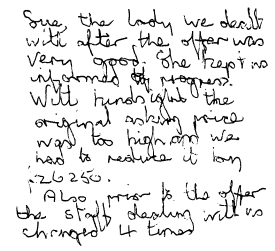 Sue, the lady we dealt
with after the offer was
very good. She kept us
informed of progress.
With hindsight the
original asking price
was too high and we
had to reduce it by
£26250.
Also prior to the offer
the staff dealing with us
changed 4 times